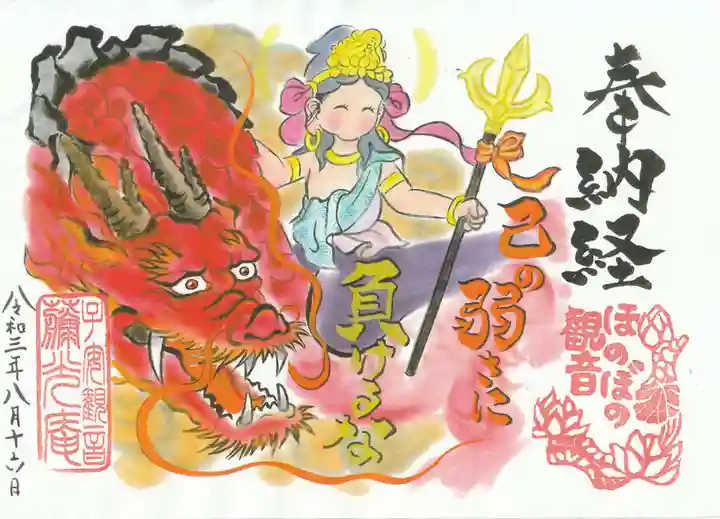 奉納経
ほのぼの
観音
己の弱さに
負けるな
子安観音
薾光庵
八令和三年八月十六日